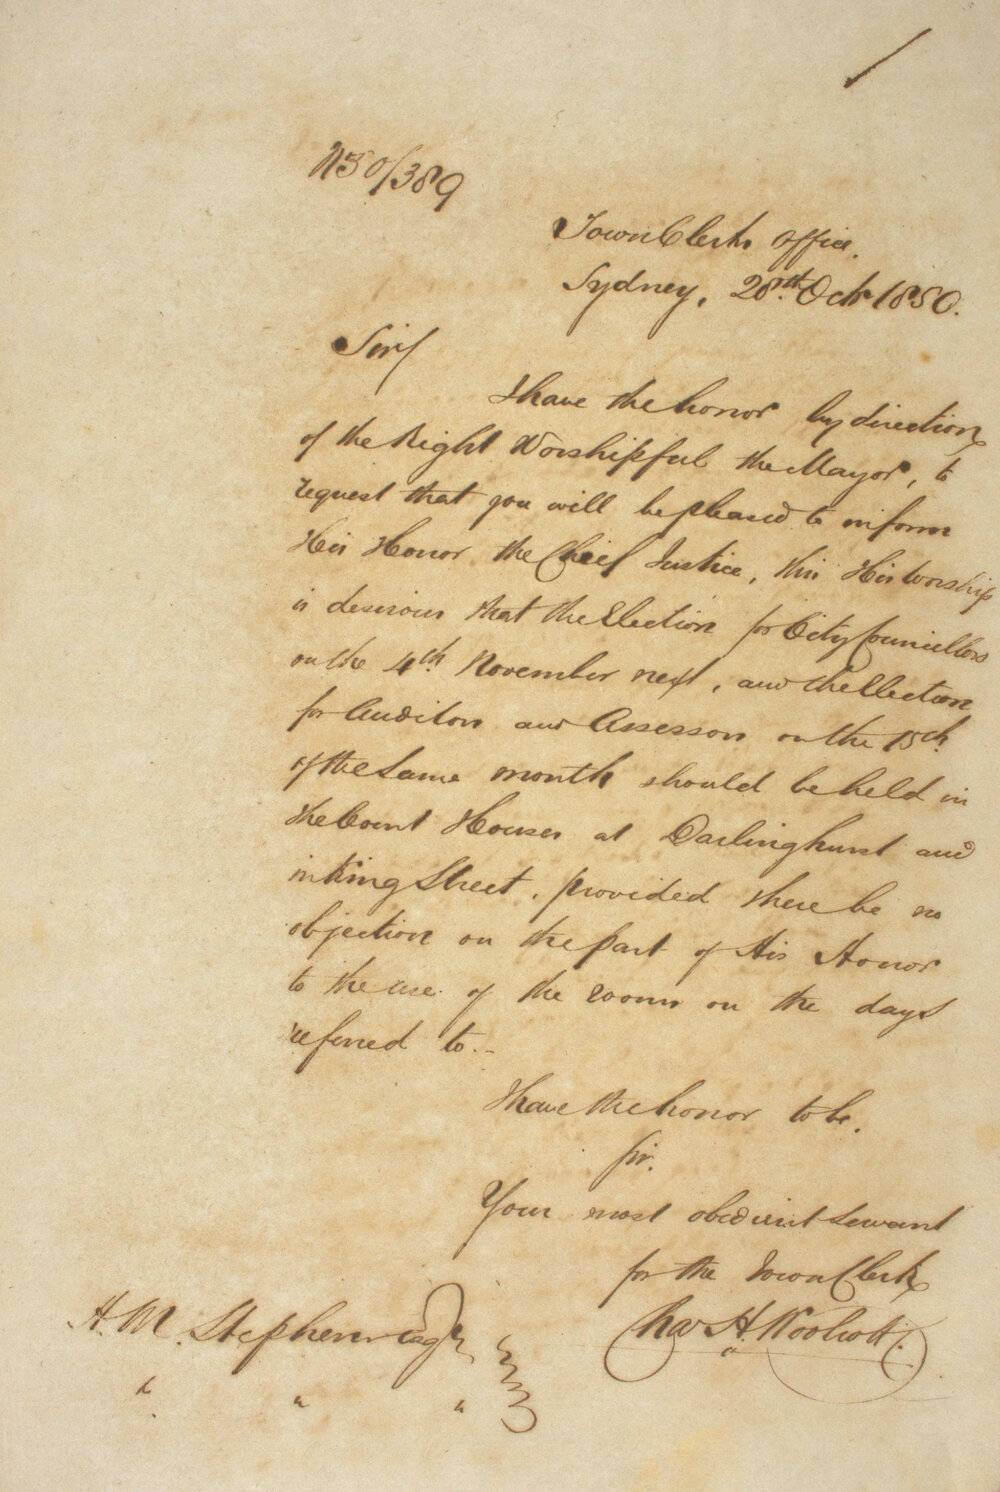 N50/389
Town Clerks Office.
Sydney, 28th Octr 1850.
Sir/
I have the honor by direction
of the Right Worshipful the Mayor, to
request that you will be pleased to inform
His Honor the Chief Justice, this His Worship
is desirous that the Election for City Councillors
on the 4th November next, and the Election
for Auditors and Assessors on the 15th
of the same month should be held in
the Court Houses at Darlinghurst and
in King Street, provided there be no
objection on the part of His Honor
to the use of the rooms on the days
referred to.-
I have the honor to be.
Sir.
Your most obedient Servant
for the Town Clerk
Chas H. Woolcott.
H. M. Stephen Esqr
" " "